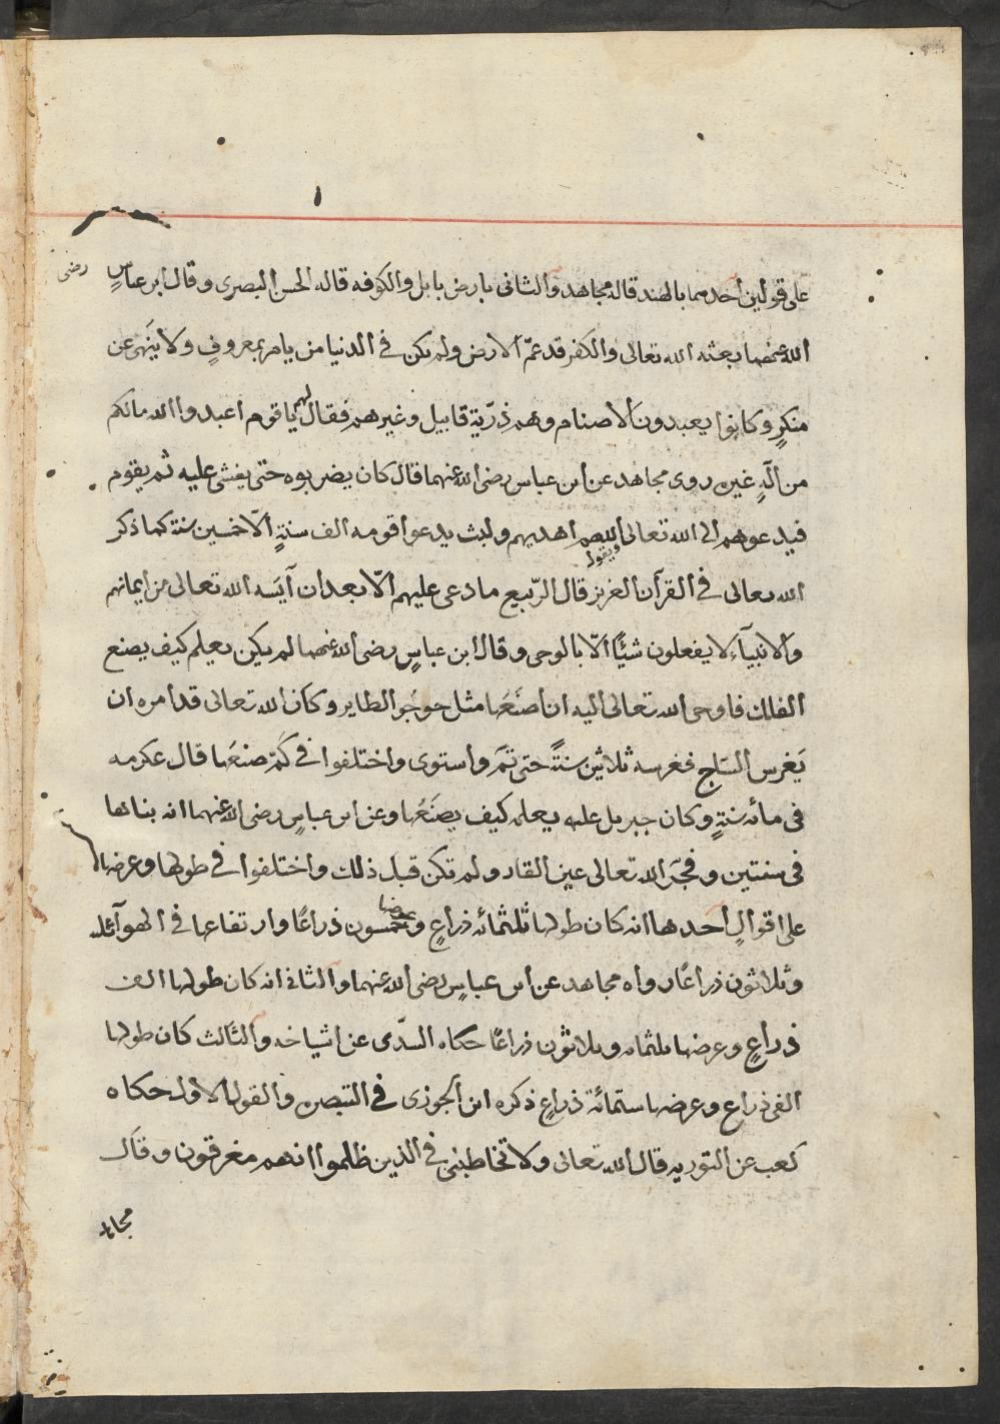 على قولين احدهما بالهند قاله مجاهد والثانى بارض بابل والكوفه قاله الحسن البصرى وقال ابن عباسٍ رضى
الله عنهما بعثه الله تعالى والكفر قد عمّ الارض ولم يكن فى الدنيا من يامر بمعروفٍ ولا ينهى عن
منكرٍ وكانوا يعبدون الاصنام وهم ذرّية قابيل وغيرهم فقال لهم ياقوم اعبدوا الله مالكم
من الٰهٍ غيره روى مجاهد عن ابن عباس رضى الله عنهما قال كان يضربوه حتى يغشى عليه ثم يقوم
فيدعوهم الى الله تعالى ويقول اللهم اهديهم ولبث يدعوا قومه الف سنةٍ الّا خمسين سنة كما ذكر
الله تعالى فى القرآن العزيز قال الرّبيع ما دعى عليهم الّا بعد ان آيَسه الله تعالى من ايمانهم
والانبيآء لا يفعلون شيئًا الّا بالوحى وقال ابن عباسٍ رضى الله عنهما لم يكن يعلم كيف يصنع
الفلك فاوحى الله تعالى اليه ان اصنَعَها مثل جوجَو الطاير وكان الله تعالى قد امره ان
يَغرس السّاج فغرسه ثلاثين سنةً حتى تمّ واستوى واختلفوا فى كَمْ صنعَها قال عكرمه
فى مائه سَنةٍ وكان جبريل عليه يعلمه كيف يصنَعُها وعن ابن عباسٍ رضى الله عنهما انه بناها
فى سنتين وفجَر الله تعالى عين القار ولم تكن قبل ذلك واختلفوا فى طولها وعرضها
على اقوالٍ احدها انه كان طولها ثلثمائه ذراعٍ وعرضها خمسون ذراعًا وارتفاعها فى الهوآ ثلثه
وثلاثون ذراعًا رواه مجاهد عن ابن عباسٍ رضى الله عنهما والثانى انه كان طولها الف
ذراعٍ وعرضها ثلثمائه وثلاثون ذراعًا حكاه السدّى عن اشياخه والثالث كان طولها
الفى ذراع وعرضها ستمائة ذراعٍ ذكره ابن الجوزى فى التبصره والقول الاول حكاه
كعب عن التوريه قال الله تعالى ولا تخاطبنى فى الذين ظلموا انهم مغرقون وقال
مجاهد